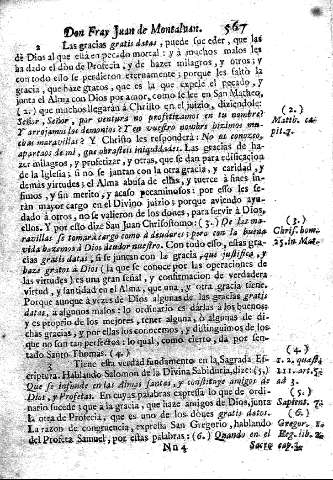 Don Fray Juan de Montalvan. 567
2 Las gracias gratis datas, puede suceder, que las
dè Dios al que està en pecado mortal: y à muchos malos les
ha dado el don de Profecia, y de hazer milagros, y otros; y
con todo ello se perdieron eternamente; porque les faltò la
gracia, que haze gratos, que es la que expele el pecado, y
junta el Alma con Dios por amor, como se lee en San Matheo,
(2.) que muchos llegaràn à Christo en el juizio, diziendole:
Señor, Señor, por ventura no profetizamos en tu nombre?
Y arrojamos los demonios? Y en vuestro nombre hizimos
chas maravillas? Y Christo les responderà: No os conozco,
apartaos de mi, que obrasteis iniquidades. Las gracias de ha-
zer milagros, y profetizar, y otras, que se dan para edificacion
de la Iglesia; si no se juntan con la otra gracia, y caridad, y
demàs virtudes; el Alma abusa de ellas, y tuerce à fines in-
fimos, y sin merito, y acaso pecaminosos: por esso les se-
ràn mayor cargo en el Divino juizio: porque aviendo ayu-
dado à otros, no se valieron de los dones, para servir à Dios,
ellos. Y por esso dize San Chrisostomo: (3.) De las ma-
ravillas se tomarà cargo como à deudores; pero con la buena
vida hazemos à Dios deudor nuestro. Con todo esso, estas gra-
cias gratis datas, si se juntan con la gracia, que justifica, y
haze gratos à Dios (la que se conoce por las operaciones de
las virtudes) es una gran señal, y confirmacion de verdadera
virtud, y santidad en el Alma, que una, y otra gracia tiene.
Porque aunque à vezes dè Dios algunas de las gracias gratis
datas, à algunos malos: lo ordinario es darlas à los buenos;
y es proprio de los mejores, tener alguna, ò algunas de di-
chas gracias; y por ellas los conocemos, y distinguimos de los
que no son tan perfectos: lo qual, como cierto, dà por sen-
tado Santo Thomas. (4.)
3 Tiene esta verdad fundamento en la Sagrada Es-
criptura. Hablando Salomon de la Divina Sabiduria, dize: (5.)
Que se infunde en las Almas santas, y constituye amigos de
Dios, y Profetas. En cuyas palabras expressa lo que de ordi-
nario sucede: que à la gracia, que haze amigos de Dios, junta
la otra de Profecia, que es uno de los dones gratis datos.
La razon de congruencia, expressa San Gregorio, hablando
del Profeta Samuel, por estas palabras: (6.) Quando en el
Nn 4
(2.)
Matth. ca-
pit. 7.
(3.)
Chris. hom.
25. in Mat.
(4.)
1. 2. quæst.
111. art. 5.
ad 3.
(5.)
Sapient. 7.
(6.)
Gregor. 1.
Reg. lib. 2.
cap. 3.